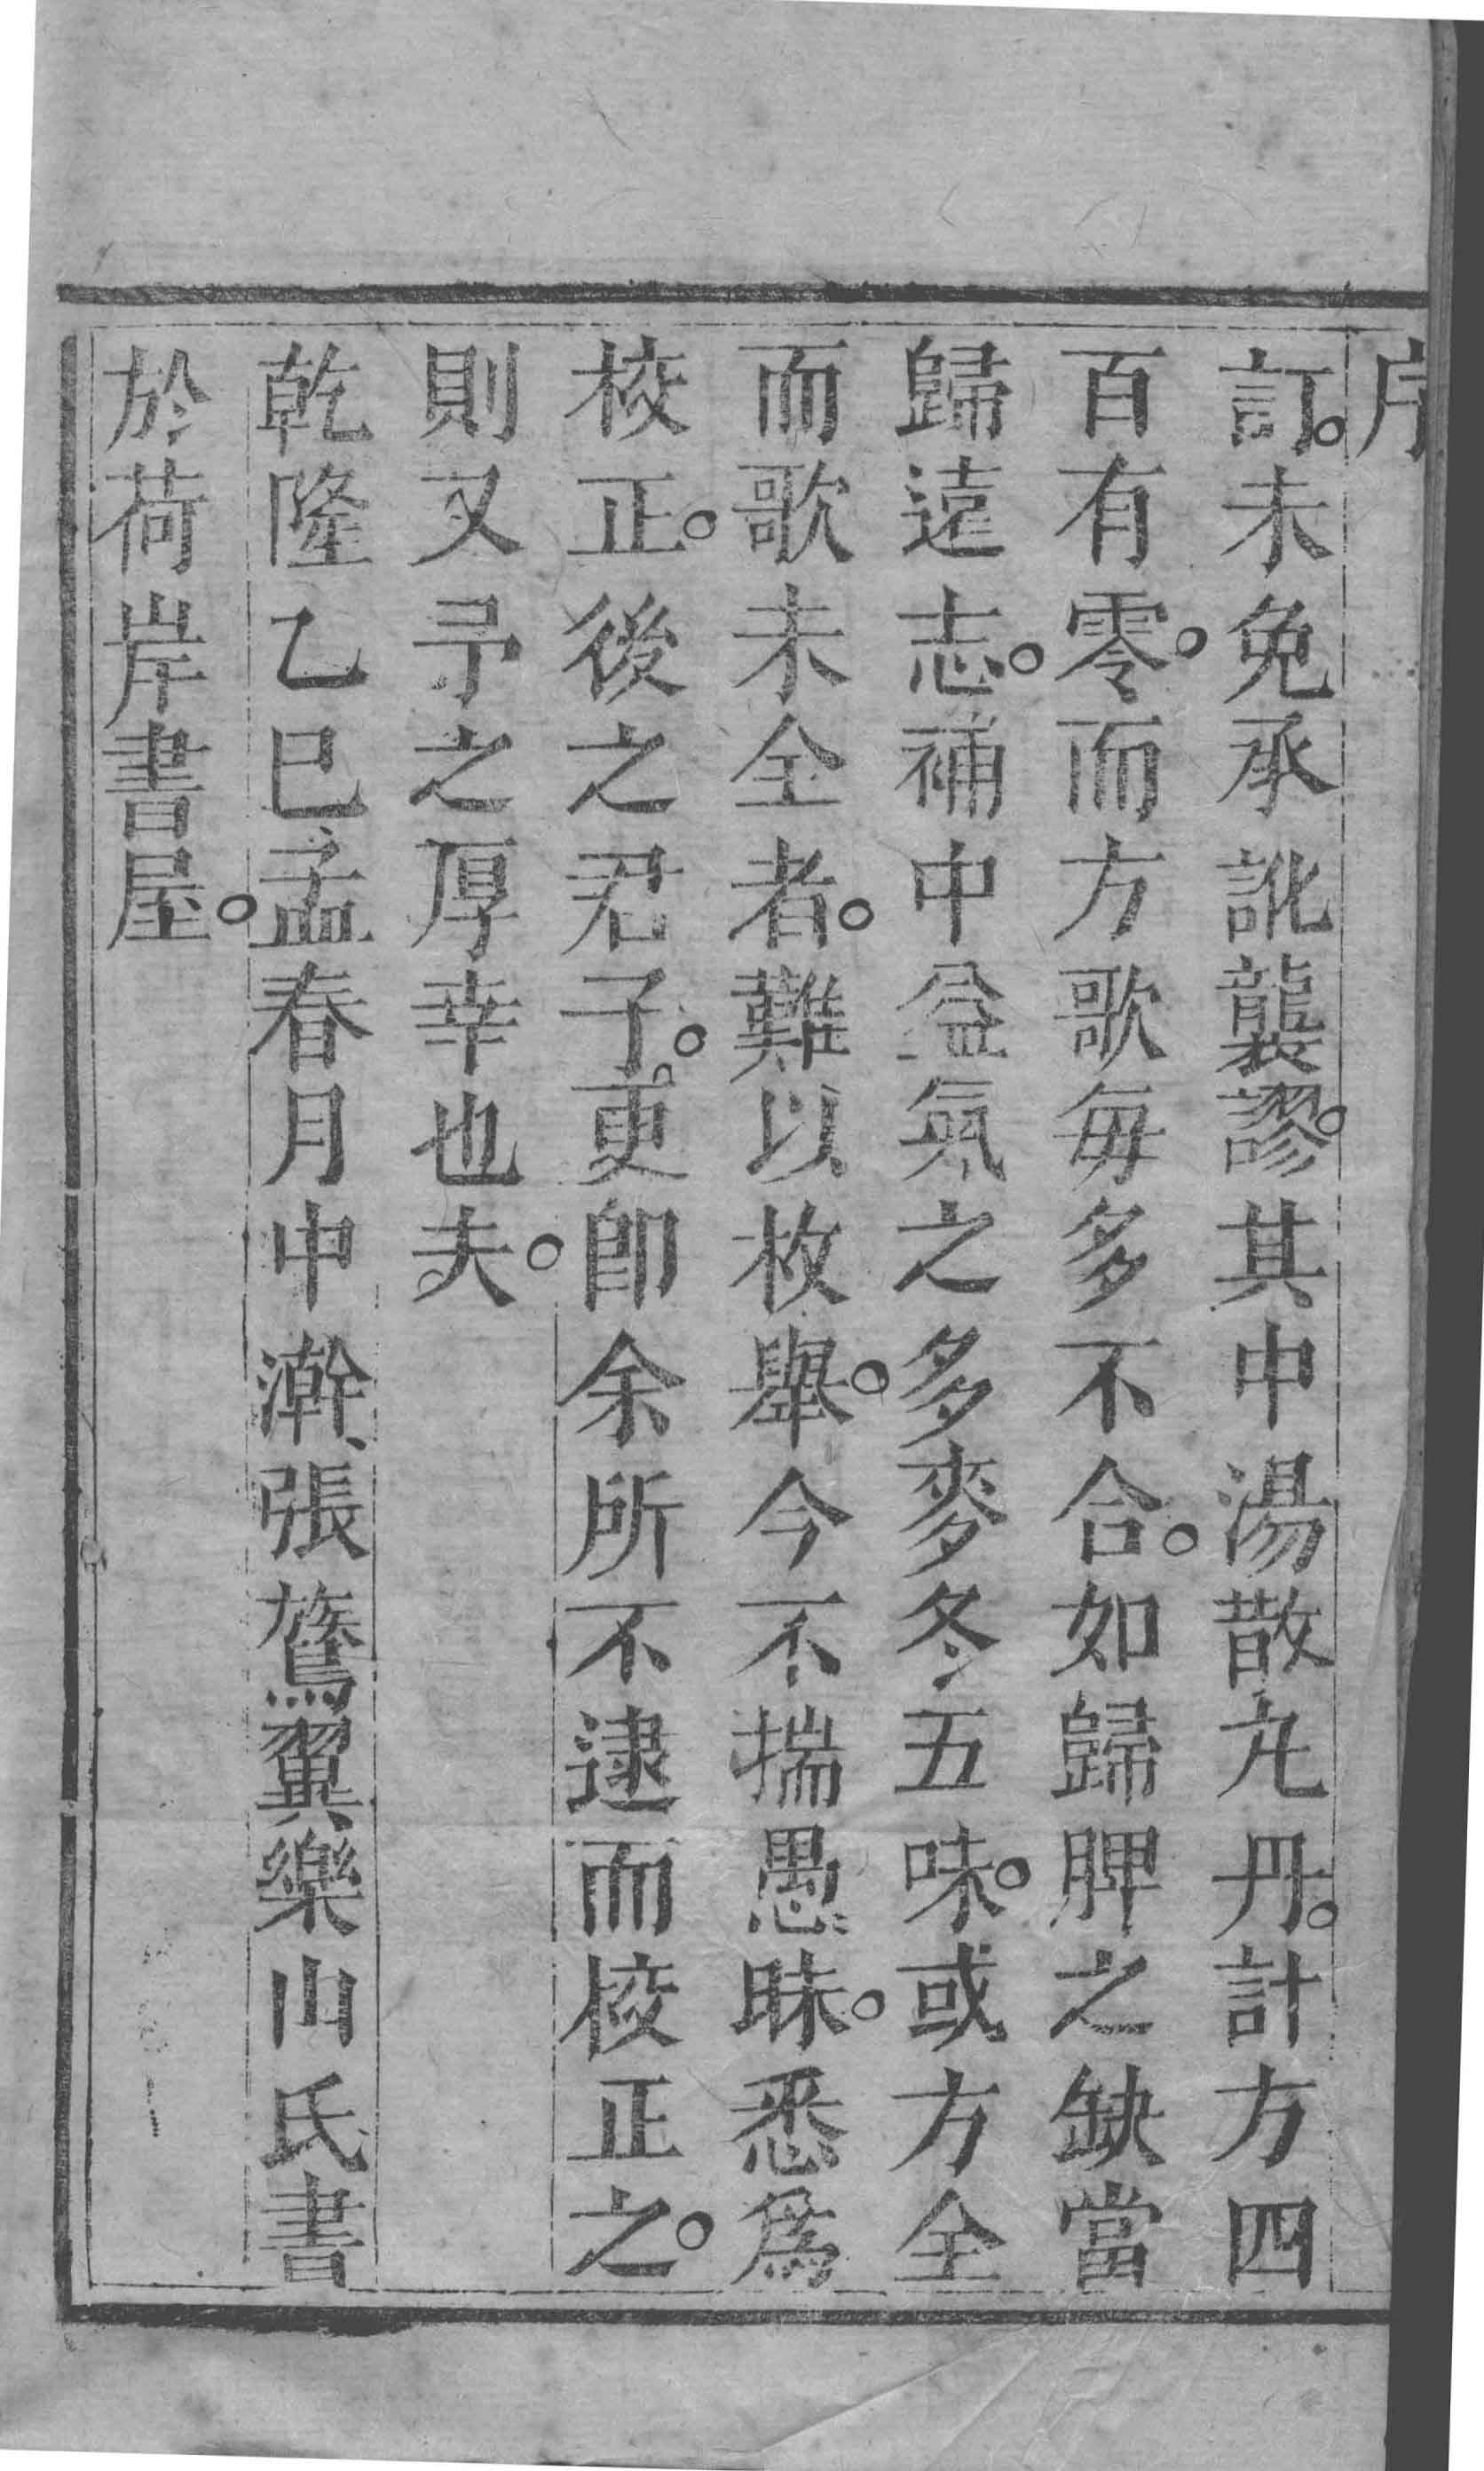 序
訂。未免承訛襲謬。其中湯散丸丹。計方四
百有零。而方歌每多不合。如歸脾之缺當
歸遠志。補中益氣之多麥冬五味。或方全
而歌未全者。難以枚舉。今不揣愚昧。悉爲
校正。後之君子。更卽余所不逮而校正之。
則又予之厚幸也夫。
乾隆乙巳孟春月中澣張鵞翼樂山氏書
於荷岸書屋。